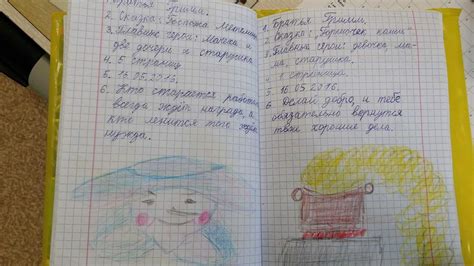 Братья Гримм.
2. Сказка: Госпожа Метелица
3. Главные герои: Мачеха и
две дочери и старушка
4. 5 страниц
5. 16.05.2016.
6. Кто старается работать
всегда ждёт награда, а
кто ленится того ждёт
нужда.
1. Братья Гримм.
2. Сказка: "Горшочек каши"
3. Главные герои: девочка, ма-
ма, старушка.
4. 1 страница
5. 16.05.2016.
6. Делай добро, и тебе
обязательно вернутся
твои хорошие дела.